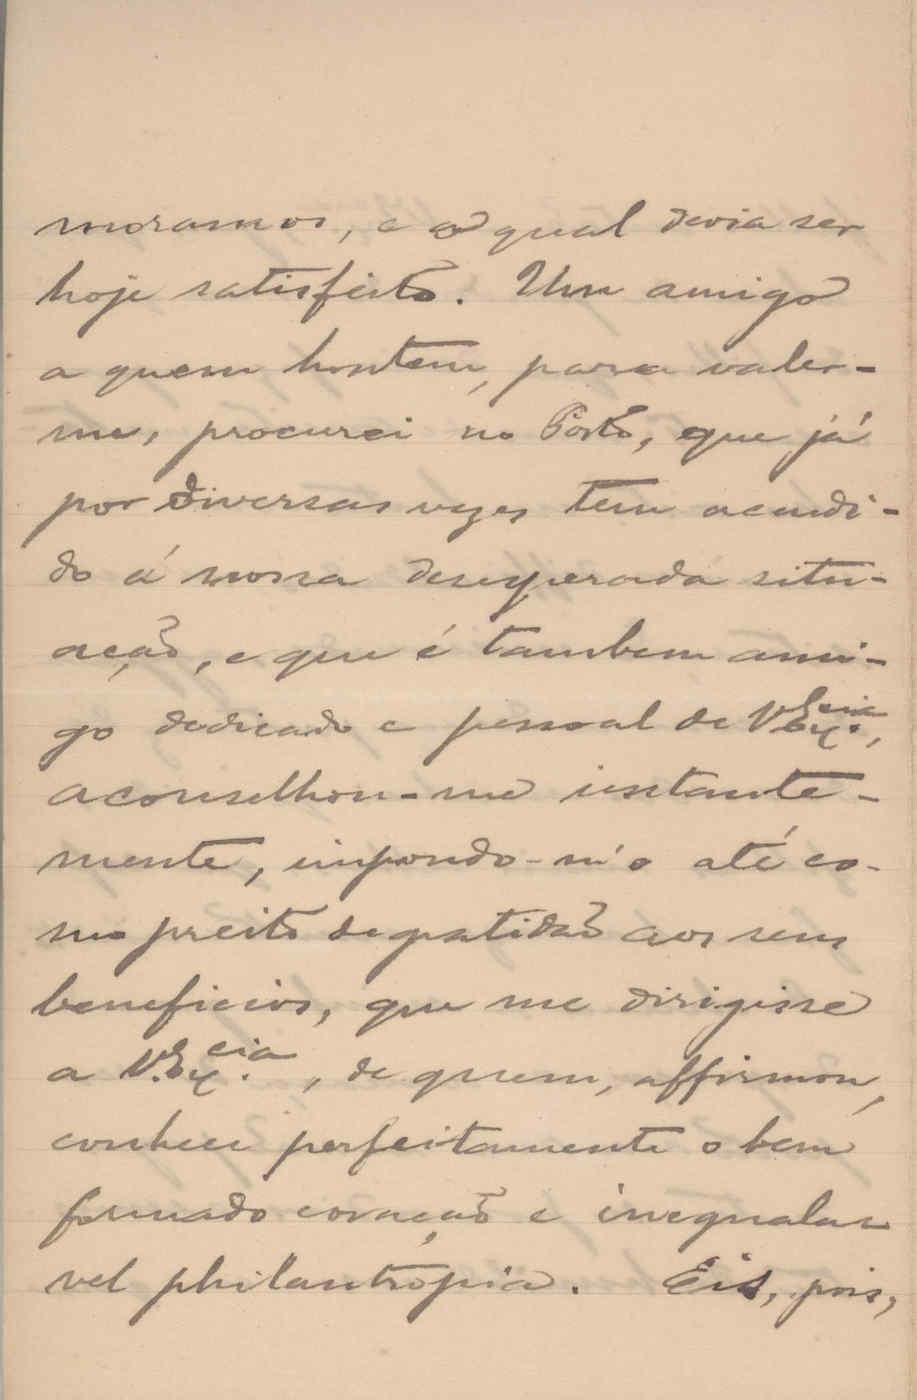 moramos, e o qual devia ser
hoje satisfeito. Um amigo
a quem hontem, para valer-
me, procurei no Porto, que já
por diversas vezes tem acudi-
do á nossa desesperada situ-
ação, e que é tambem ami-
go dedicado e pessoal de V. Ex.cia,
aconselhou-me instante-
mente, impondo-m'o até co-
mo preito de gratidão aos seus
beneficios, que me dirigisse
a V. Ex.cia, de quem, affirmou,
conhece perfeitamente o bem
formado coração e ineguala-
vel philantrópia. Eis, pois,